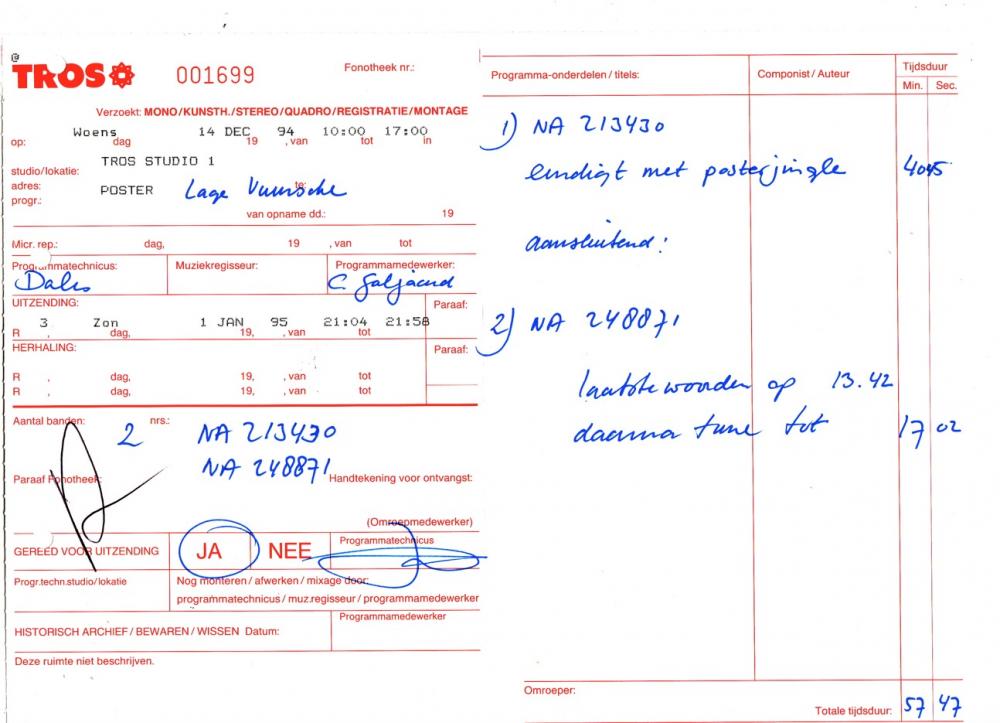 @
TROS
001699
Fonotheek nr.:
Verzoekt: MONO/KUNSTH./STEREO/QUADRO/REGISTRATIE/MONTAGE
Woens 14 DEC 94 10:00 17:00
op: dag 19 , van tot in
TROS STUDIO 1
studio/lokatie:
adres: te:
POSTER Lage Vuursche
progr.:
van opname dd.: 19
Micr. rep.: dag, 19 , van tot
Programmatechnicus: Muziekregisseur: Programmamedewerker:
C. Galjaard
UITZENDING: Paraaf:
3 Zon 1 JAN 95 21:04 21:58
R , dag, 19, , van tot
HERHALING: Paraaf:
R , dag, 19, , van tot
R , dag, 19, , van tot
Aantal banden: nrs.:
2 NA 213430
NA 248871
Paraaf Fonotheek: Handtekening voor ontvangst:
(Omroepmedewerker)
GEREED VOOR UITZENDING JA NEE Programmatechnicus
Progr.techn.studio/lokatie Nog monteren / afwerken / mixage door:
programmatechnicus / muz.regisseur / programmamedewerker
Programmamedewerker
HISTORISCH ARCHIEF / BEWAREN / WISSEN Datum:
Deze ruimte niet beschrijven.
Programma-onderdelen / titels: Componist / Auteur Tijdsduur
Min. Sec.
1) NA 213430
eindigt met posterjingle 40 45
aansluitend:
2) NA 248871
laatste woorden op 13.42
daarna tune tot 17 02
Omroeper:
Totale tijdsduur: 57 47